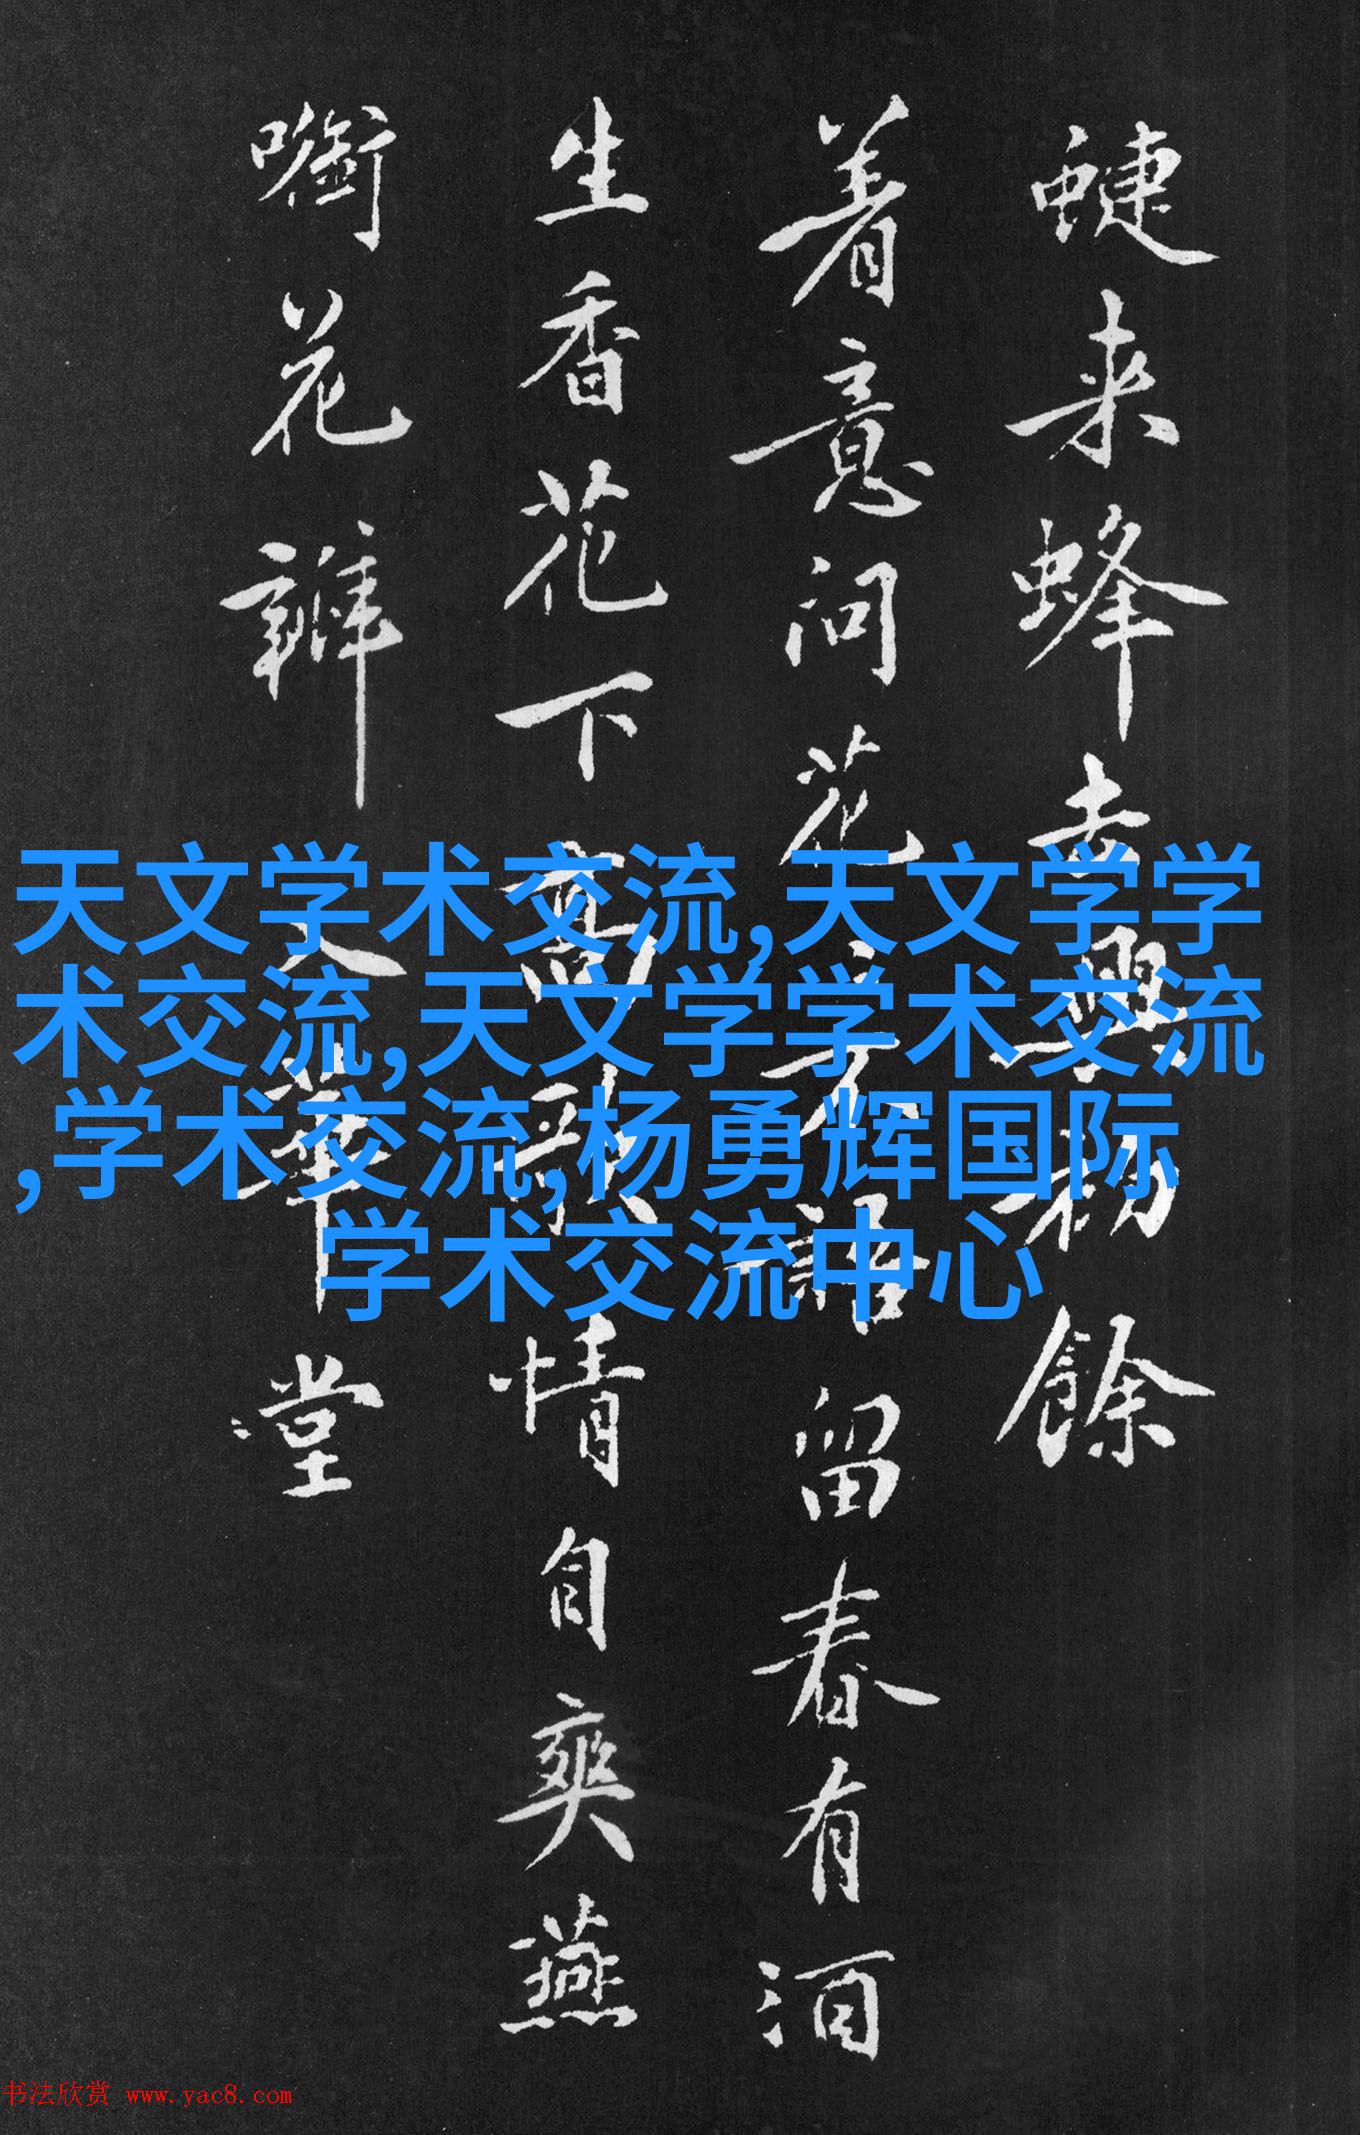 蜨来蜂去興初餘
着意问花不語留春有酒
生香花下高歌情自爽燕
花華堂
天文学术交流,天文学学
术交流,天文学学术交流
,学术交流,杨勇辉国际
学术交流中心
书法欣赏 www.yac8.com